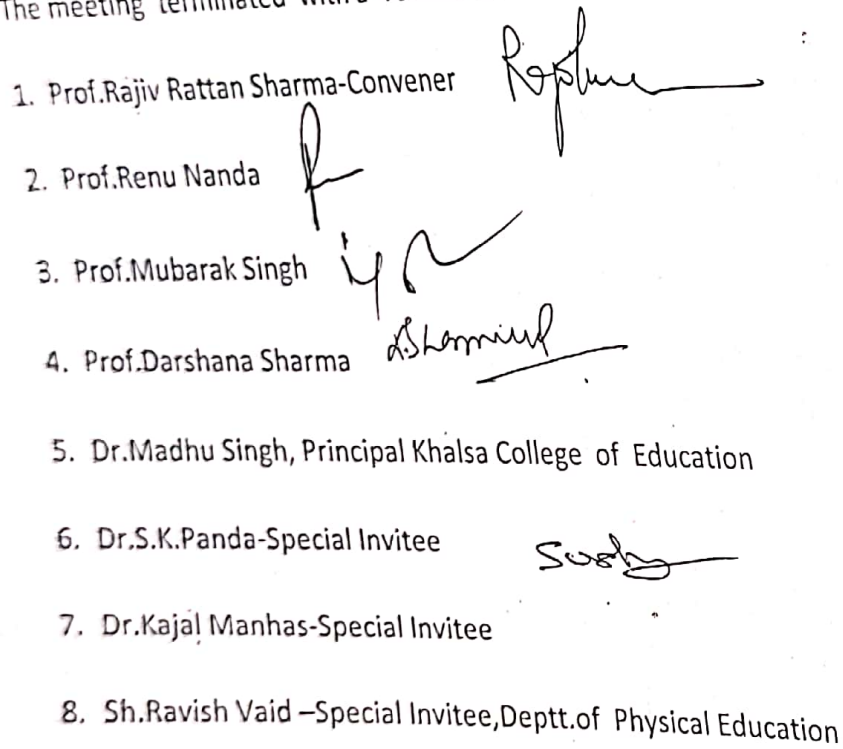 The meeting terminated with a
1. Prof.Rajiv Rattan Sharma-Convener
2. Prof.Renu Nanda
3. Prof.Mubarak Singh
4. Prof.Darshana Sharma
5. Dr.Madhu Singh, Principal Khalsa College of Education
6. Dr.S.K.Panda-Special Invitee
7. Dr.Kajal Manhas-Special Invitee
8. Sh.Ravish Vaid –Special Invitee,Deptt.of Physical Education